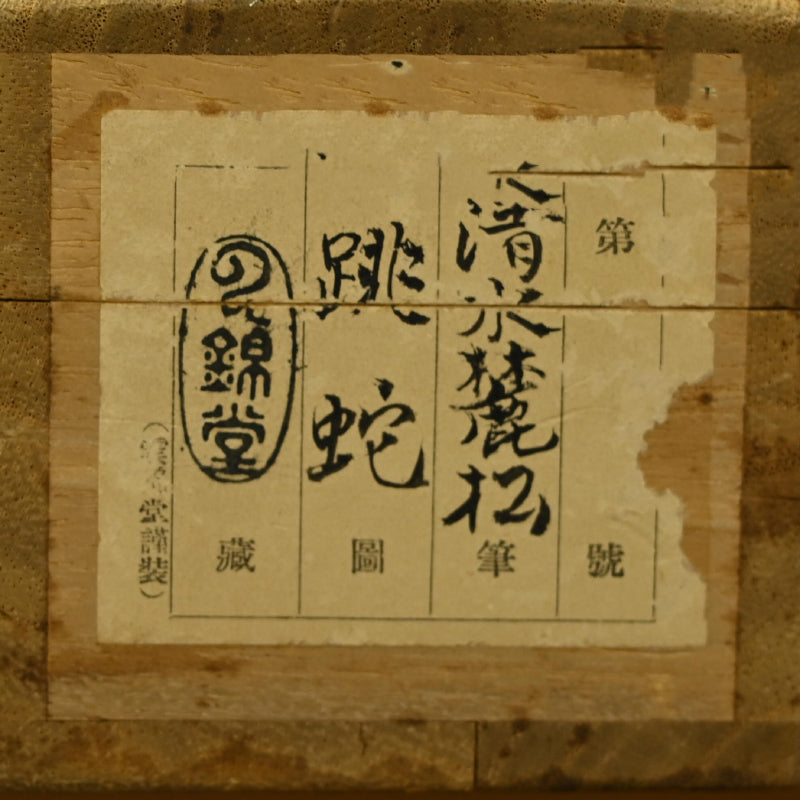 第 號
清水麓松 筆
跳蛇 圖
錦堂 藏
堂謹裝）